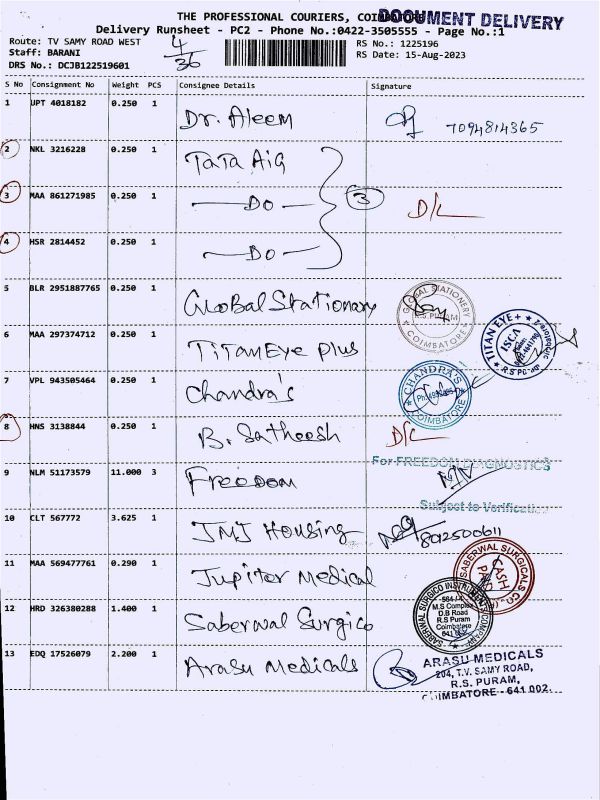 THE PROFESSIONAL COURIERS, COIMBATORE
DOCUMENT DELIVERY
Delivery Runsheet - PC2 - Phone No.:0422-3505555 - Page No.:1
Route: TV SAMY ROAD WEST
4/36
RS No.: 1225196
Staff: BARANI
RS Date: 15-Aug-2023
DRS No.: DCJB122519601
S No Consignment No Weight PCS Consignee Details Signature
1 UPT 4018182 0.250 1 Dr. Aleem 7094814365
2 NKL 3216228 0.250 1 TaTa AiG
3 MAA 861271985 0.250 1 — Do — 3 D/L
4 HSR 2814452 0.250 1 — Do —
5 BLR 2951887765 0.250 1 Global Stationary
GLOBAL STATIONERY
R.S. PURAM
COIMBATORE
6 MAA 297374712 0.250 1 TiTan Eye Plus
TITAN EYE+
ISCA
R.S PURAM
7 VPL 943505464 0.250 1 Chandra's
CHANDRA'S
COIMBATORE
8 HNS 3138844 0.250 1 B. Satheesh D/L
For FREEDOM DIAGNOSTICS
9 NLM 51173579 11.000 3 Freedom
Subject to Verification
10 CLT 567772 3.625 1 JMJ Housing 8012500611
11 MAA 569477761 0.290 1 Jupiter Medical
SABERWAL SURGICALS CO.,
CASH PAID
12 HRD 326380288 1.400 1 Saberwal Surgico
SABERWAL SURGICO INSTRUMENTS COMPANY
M.S Complex
D.B Road
R.S Puram
Coimbatore
13 EDQ 17526079 2.200 1 Arasu Medicals
ARASU MEDICALS
204, T.V. SAMY ROAD,
R.S. PURAM,
COIMBATORE - 641 002.